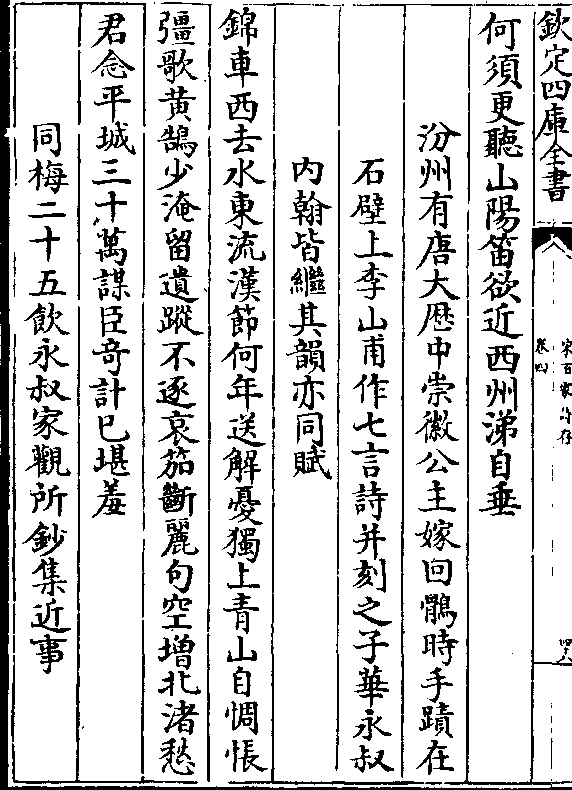 欽定四庫全書
宋百家詩存
卷四
何須更聽山陽笛欲近西州涕自垂
汾州有唐大厯中崇徽公主嫁回鶻時手蹟在
石壁上李山甫作七言詩并刻之子華永叔
内翰皆繼其韻亦同賦
錦車西去水東流漢節何年送解憂獨上青山自惆悵
彊歌黄鵠少淹留遺蹤不逐哀笳斷麗句空增北渚愁
君念平城三十萬謀臣奇計已堪羞
同梅二十五飲永叔家觀所鈔集近事